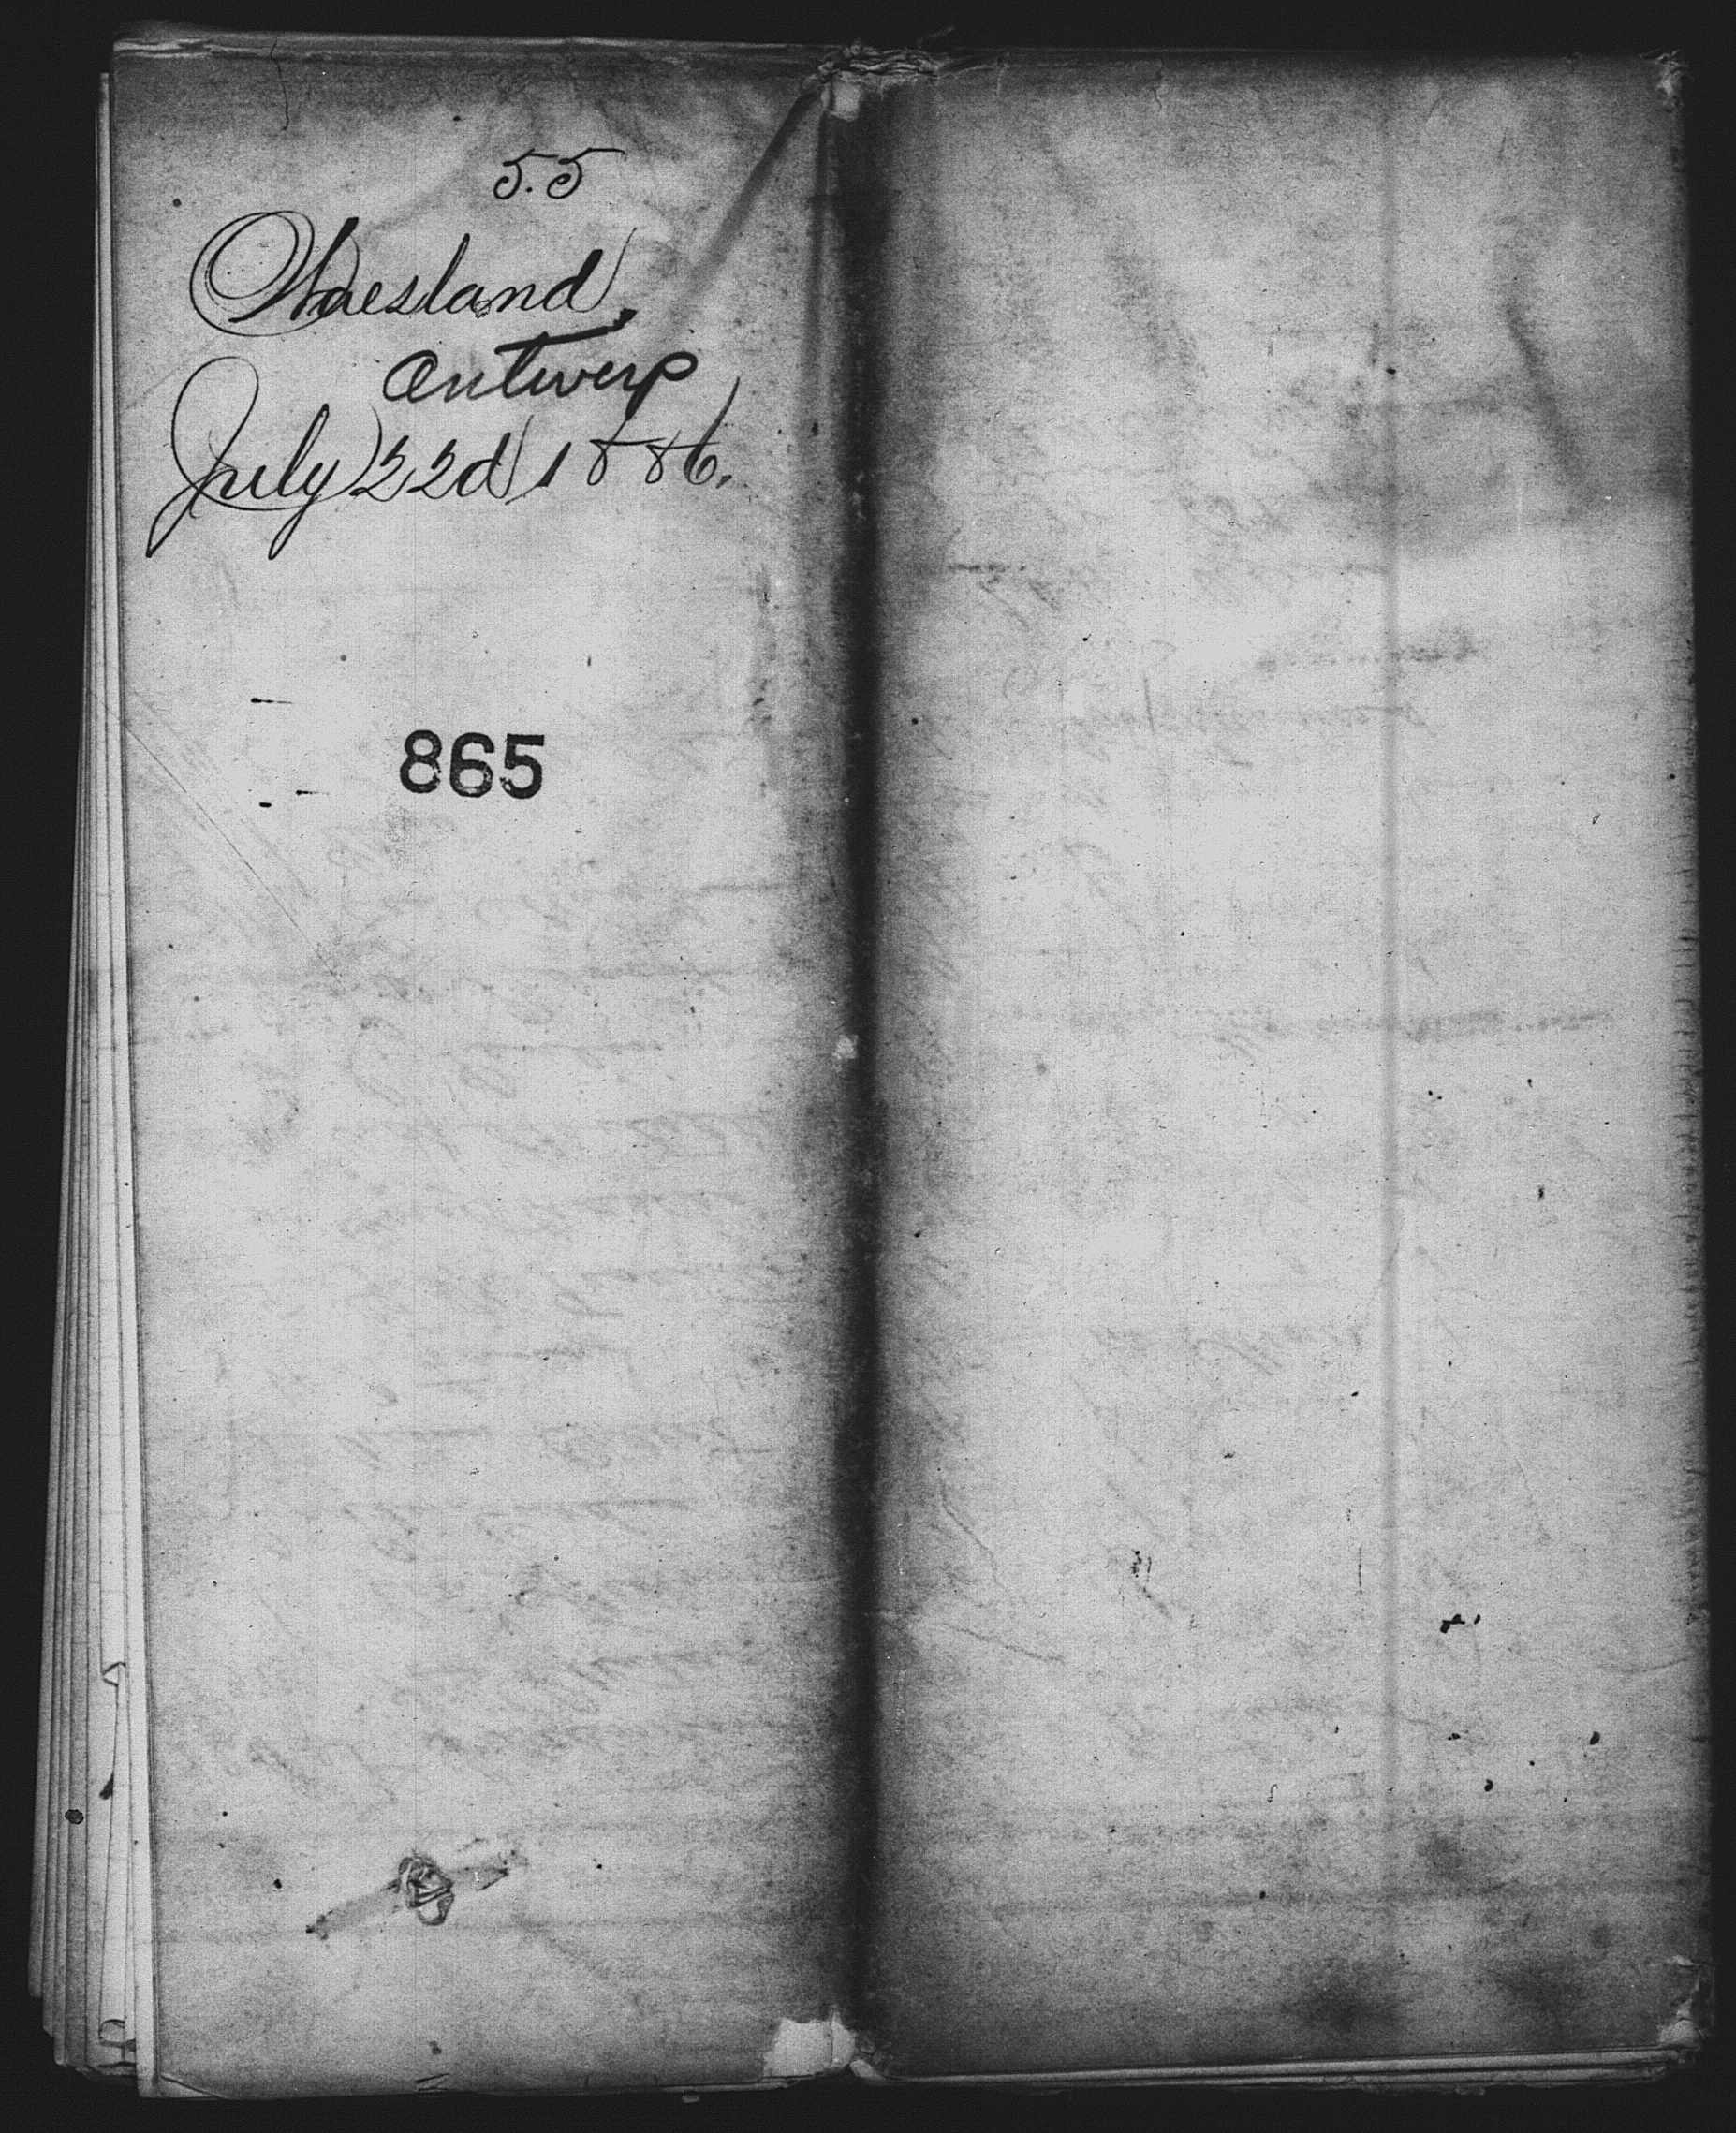 5.5
Waesland,
Antwerp
July 22d 1886.
865